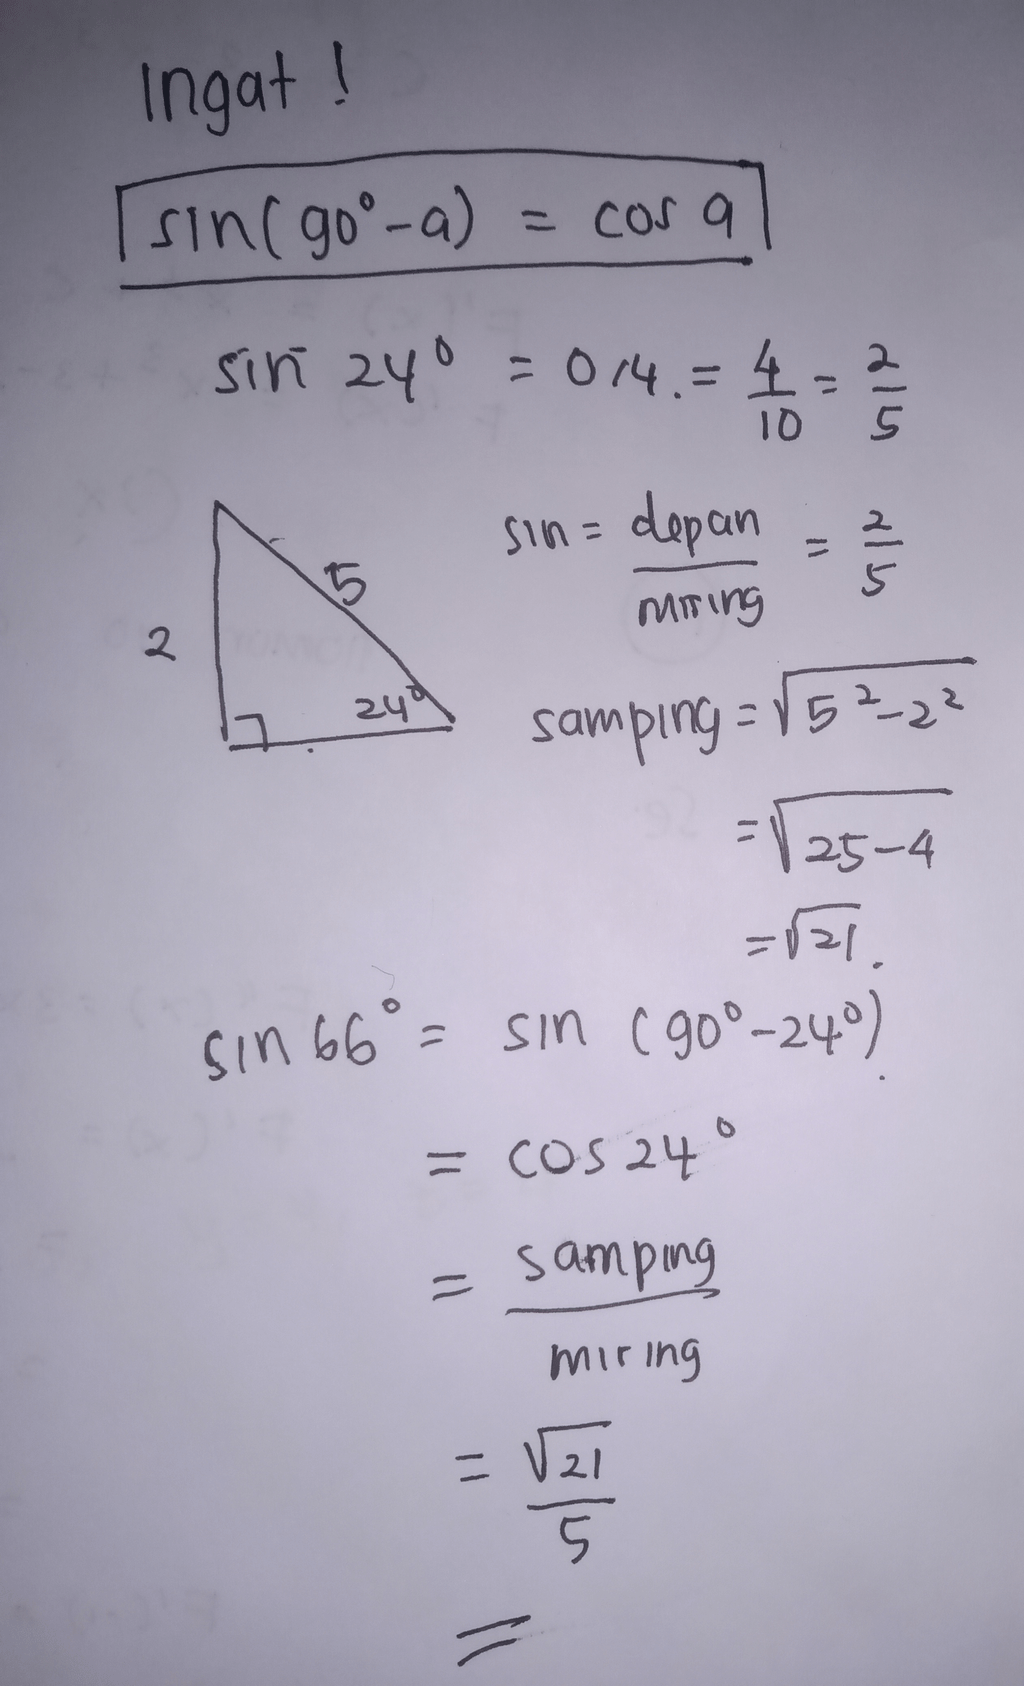 Ingat !
sin(90°-a) = cos a
sin 24° = 0,4. = 4/10 = 2/5
sin = depan/miring = 2/5
5
2
24°
samping = √5²-2²
= √25-4
= √21.
sin 66° = sin (90°-24°).
= cos 24°
= samping/miring
= √21/5